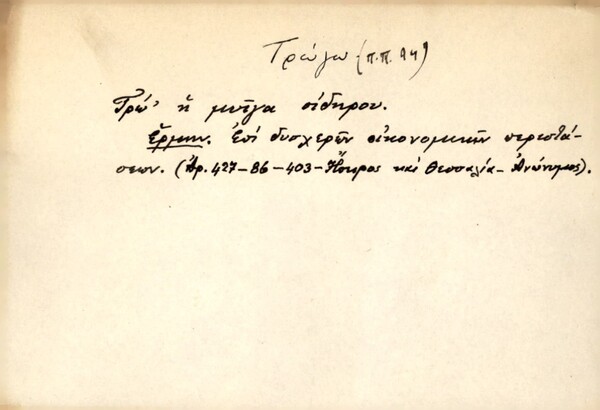 Τρώγω (π.π. 94)
Τρώ' ἡ μυῖγα σίδηρου.
Ἑρμην. Ἐπὶ δυσχερῶν οἰκονομικῶν περιστά-
σεων. (Ἀρ. 427-86-403-Ἤπειρος καὶ Θεσσαλία-Ἀνώνυμος).